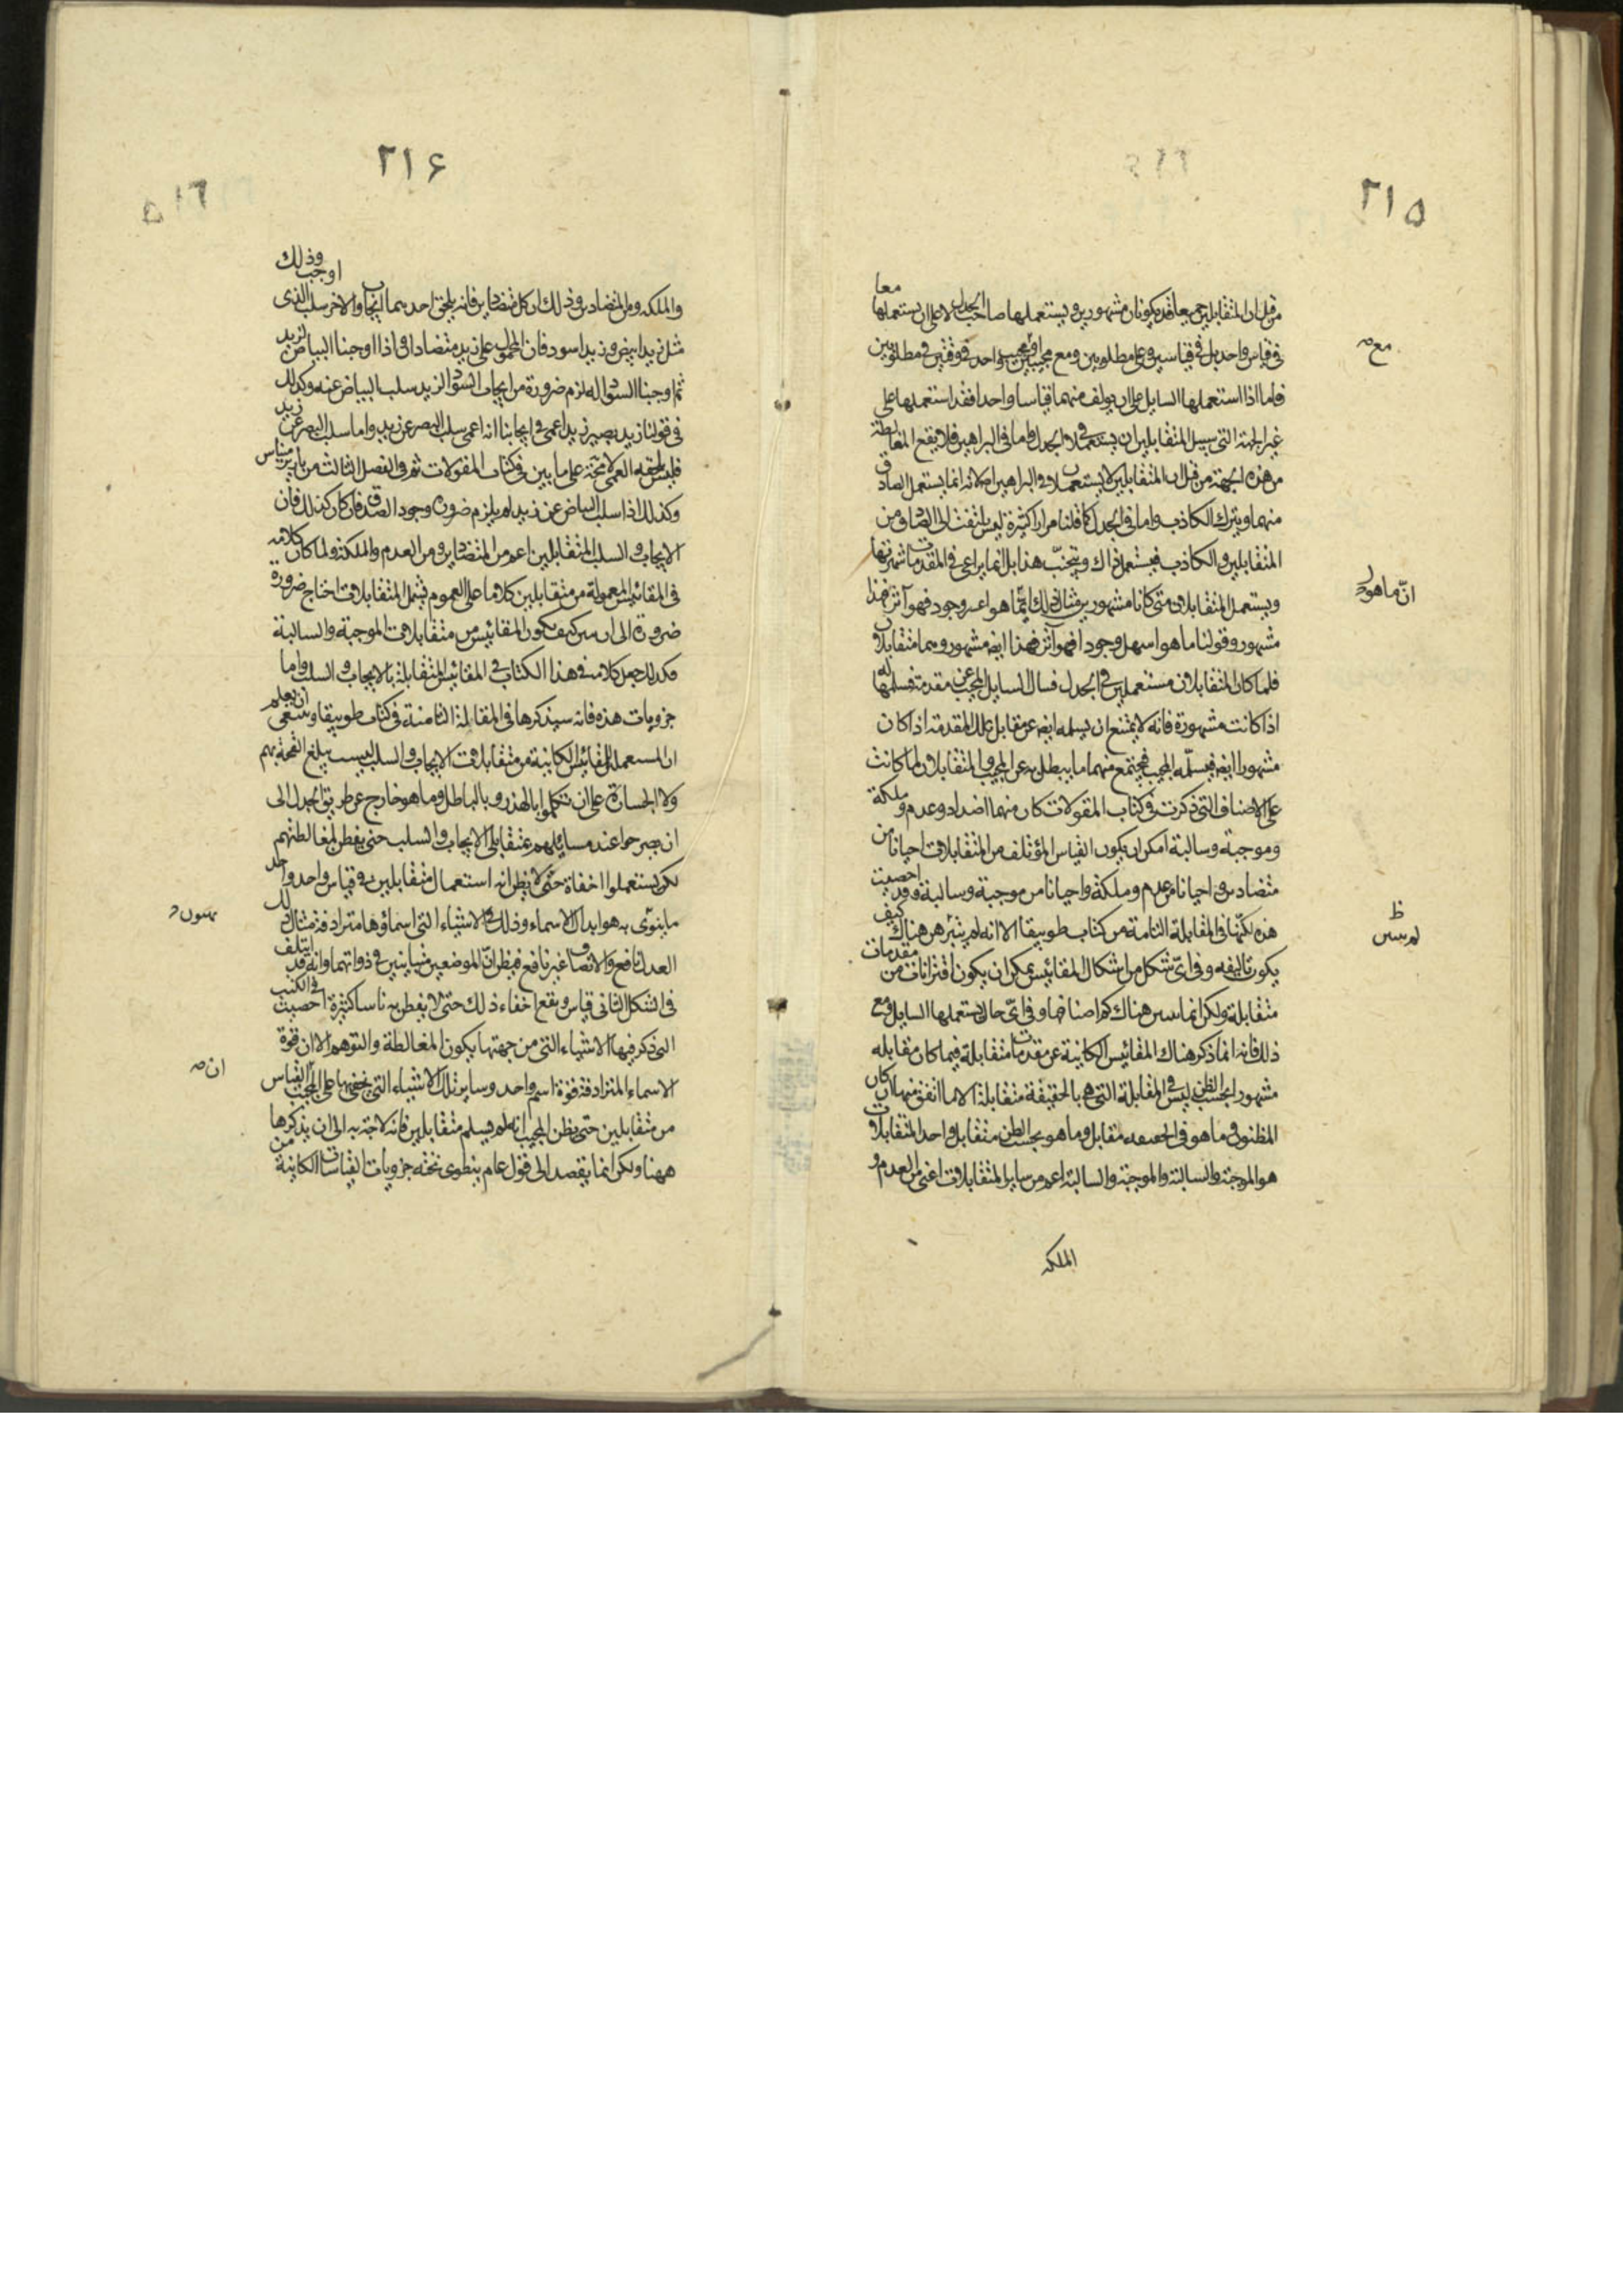 ٢١٥
معا
من قبل ان المتقابلين جميعا قد يكونان مشهورين ويستعملها صاحب الجدل لا على ان يستعملها
فى قياس واحد بل فى قياسين وعلى مطلوبين ومع مجيبين او مجيب واحد فى وقتين فى مطلوبين
مع
فاما اذا استعملها السايل على ان يولف منهما قياسا واحدا فقد استعملها على
غير الجهة التى سبيل المتقابلين ان يستعملا فى الجدل واما فى البراهين فلا يقع المغالطة
من هذه الجهة من قبل ان المتقابلين لا يستعملان فى البراهين اصلا لانه انما يستعمل الصادق
منهما ويترك الكاذب واما فى الجدل كما قلنا مرارا كثيرة ليس يلتفت الى الصادق من
المتقابلين والكاذب فيستعمل ذاك ويتجنب هذا بل انما يراعى فى المقدمات شهرتها
ويستعمل المتقابلان متى كانا مشهورين مثال ذلك ما هو اعسر وجود فهو آثر فهذا
ان ما هو
مشهور وقولنا ما هو اسهل وجودا فهو آثر فهذا ايضا مشهور وهما متقابلان
فلما كان المتقابلان مستعملين فى الجدل فسال السايل المجيب عن مقدمة فسلمها له
اذا كانت مشهورة فانه لا يمتنع ان يسلمه ايضا عن مقابل تلك المقدمة اذا كان
مشهورا ايضا فيسلمه المجيب فيجتمع منهما ما يبطل به عن المجيب والمتقابلان لما كانت
على الاصناف التى ذكرت فى كتاب المقولات كان منهما اضداد وعدم وملكة
وموجبة وسالبة امكن ان يكون القياس المؤتلف من المتقابلات احيانا من
متضادين واحيانا من عدم وملكة واحيانا من موجبة وسالبة وقد احصيت
هذه لكنها فى المقابلة الثامنة من كتاب طوبيقا الا انه لم يتبرهن هناك كيف
ظ
لم يتبين
يكون تاليفه وفى اى شكل من اشكال المقائيس يمكن ان يكون اقترانات من مقدمات
متقابلة ولكن انما تبين هناك كم اصنافها وفى اى حال يستعملها السايل ومع
ذلك فانه انما ذكر هناك المقائيس الكائنة عن مقدمات متقابلة فيما كان مقابله
مشهورا بحسب الظن ليس فى المقابلة التى هى بالحقيقة متقابلة الا ما اتفق منها ان كان
المظنون وما هو فى الحقيقة متقابل وما هو بحسب الظن متقابل واحدا المتقابلات
هو الموجبة والسالبة والموجبة والسالبة اعم من ساير المتقابلات اعنى من العدم و
الملكه
٢١۶
وذلك
اوجب
والملكه ومن المتضادين وذلك ان كل متضادين فانه يلحق احدهما ايجاب والاخر سلب الذى
مثل زيد ابيض وزيد اسود فان المحمول على زيد متضادان واذا اوجبنا البياض لزيد
ثم اوجبنا السواد له لزم ضرورة من ايجاب السواد لزيد سلب البياض عنه وكذلك
فى قولنا زيد بصير زيد اعمى فى ايجابنا انه اعمى سلب البصر عن زيد واما سلب البصر عن زيد
فليس يلحقه العمى لا محة على ما بين فى كتاب المقولات ثم فى الفصل الثالث من
وكذلك اذا سلب البياض عن زيد لم يلزم ضرورة وجود الضد فان كان كذلك فان
الايجاب والسلب المتقابلين اعم من المتضادين ومن العدم والملكة ولما كان كلامه
فى المقائيس المعمولة من متقابلين كلاما على العموم يشمل المتقابلات احتاج ضرورة
ضرورة الى ان يبين كيف يكون المقائيس من متقابلات الموجبة والسالبة
فكذلك جعل كلامه فى هذا الكتاب فى المقائيس المتقابلة بالايجاب والسلب واما
جزويات هذه فانه سيذكرها فى المقالة الثامنة فى كتاب طوبيقا وينبغى ان يعلم
ان المستعمل للمقائيس الكائنة من متقابلات الايجاب والسلب ليست يبلغ القحة بهم
ولا الجسارة على ان يتكلموا بالهذر وبالباطل وما هو خارج عن طريق الجدل الى
ان يصرحوا عند مسايلهم بمتقابلى الايجاب والسلب حتى يفطن لمغالطتهم
لكن يستعملوا اخفاة حتى لا يظن انه استعمال متقابلين فى قياس واحد واحد
ما ينوى به هو ابدال الاسماء وذلك فى الاشياء التى اسماؤها مترادفة مثال ذلك
العدل نافع والانصاف غير نافع فيظن ان الموضعين متباينين فى ذواتهما وانه قد ايتلف
فى الشكل الثانى قياس ويقع اخفاء ذلك حتى لا يفطن به ناسا كثيرة احصيت فى الكتب
التى ذكر فيها الاشياء التى من جهتها يكون المغالطة والتوهم الا ان قوة
الاسماء المترادفة قوة اسم واحد وساير تلك الاشياء التى يخفى بها على المجيب القياس
ان
من متقابلين حتى يظن المجيب انه لم يسلم متقابلين فانه لا حاجة به الى ان يذكرها
ههنا ولكن انما يقصد الى قول عام ينطوى تحته جزويات القياسات الكائنة من